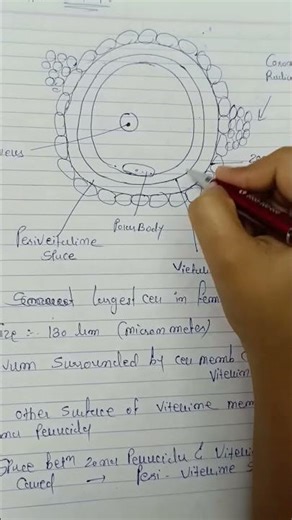 Coron
Radia
eus
Polar Body
Perivetulline
Space
Vietul
largest cell in fem
ize :- 130 um (micrommeter)
vum Surrounded by cell memb
Vitellin
other Surface of Vitelline mem
ona Penucida
Space betn Zona Penucida & Vitellin
Called → Peri - Vitelline S